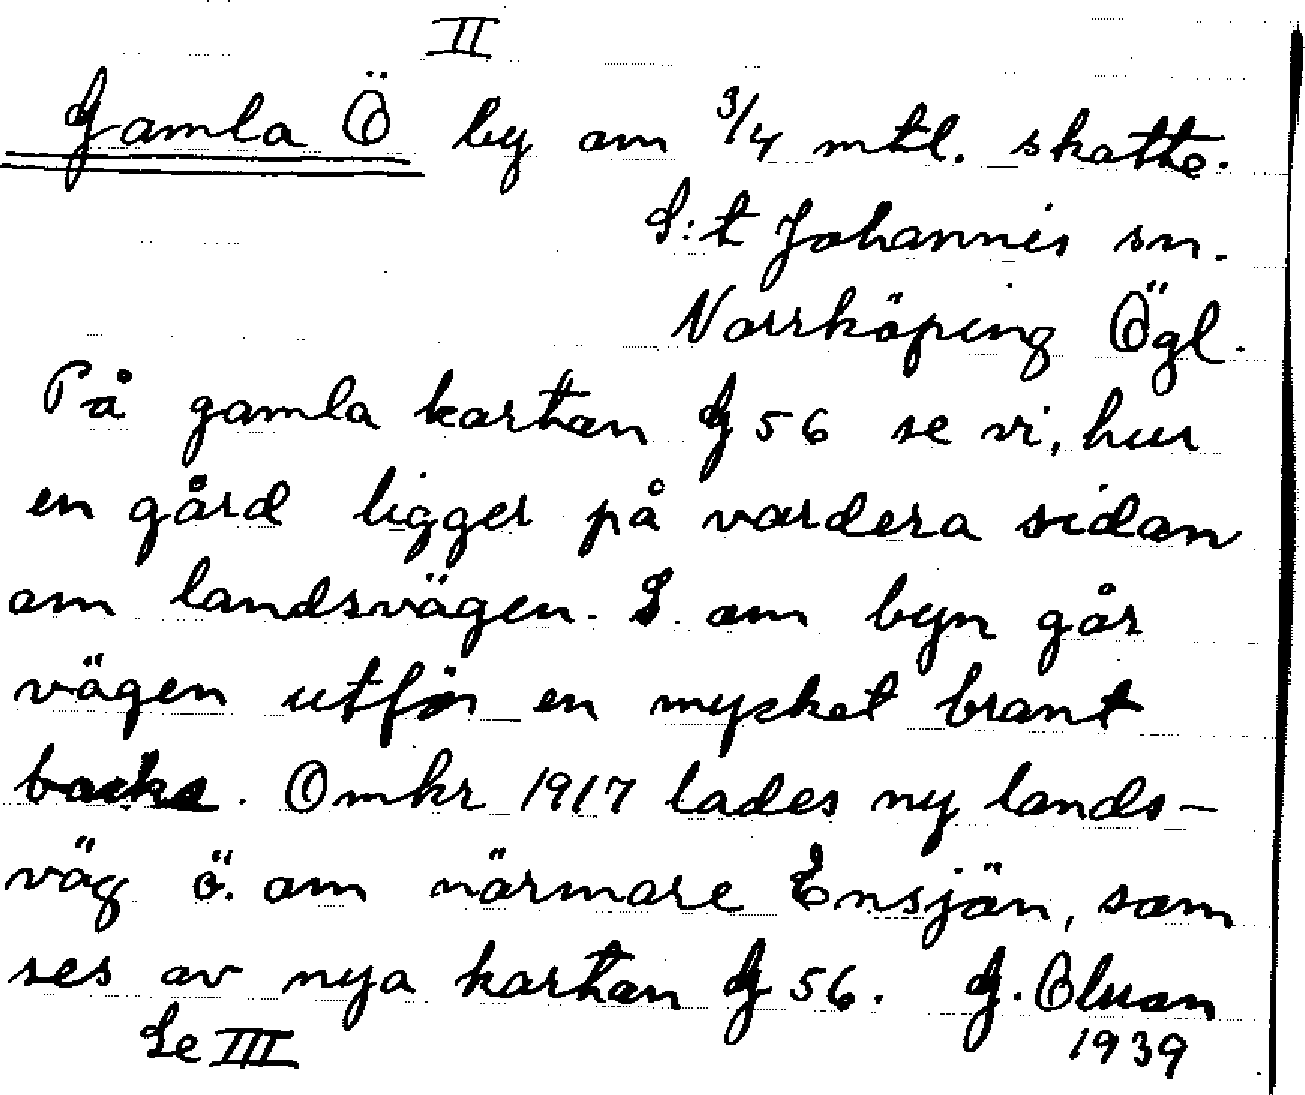 II
Gamla Ö by om 3/4 mtl. skatte.
S:t Johannis sn.
Norrköping Ögl.
På gamla kartan G 56 se vi, hur
en gård ligger på vardera sidan
om landsvägen. S. om byn går
vägen utför en mycket brant
backe. Omkr 1917 lades ny lands-
väg ö. om närmare Ensjön, som
ses av nya kartan G 56. G. Olson
Se III 1939